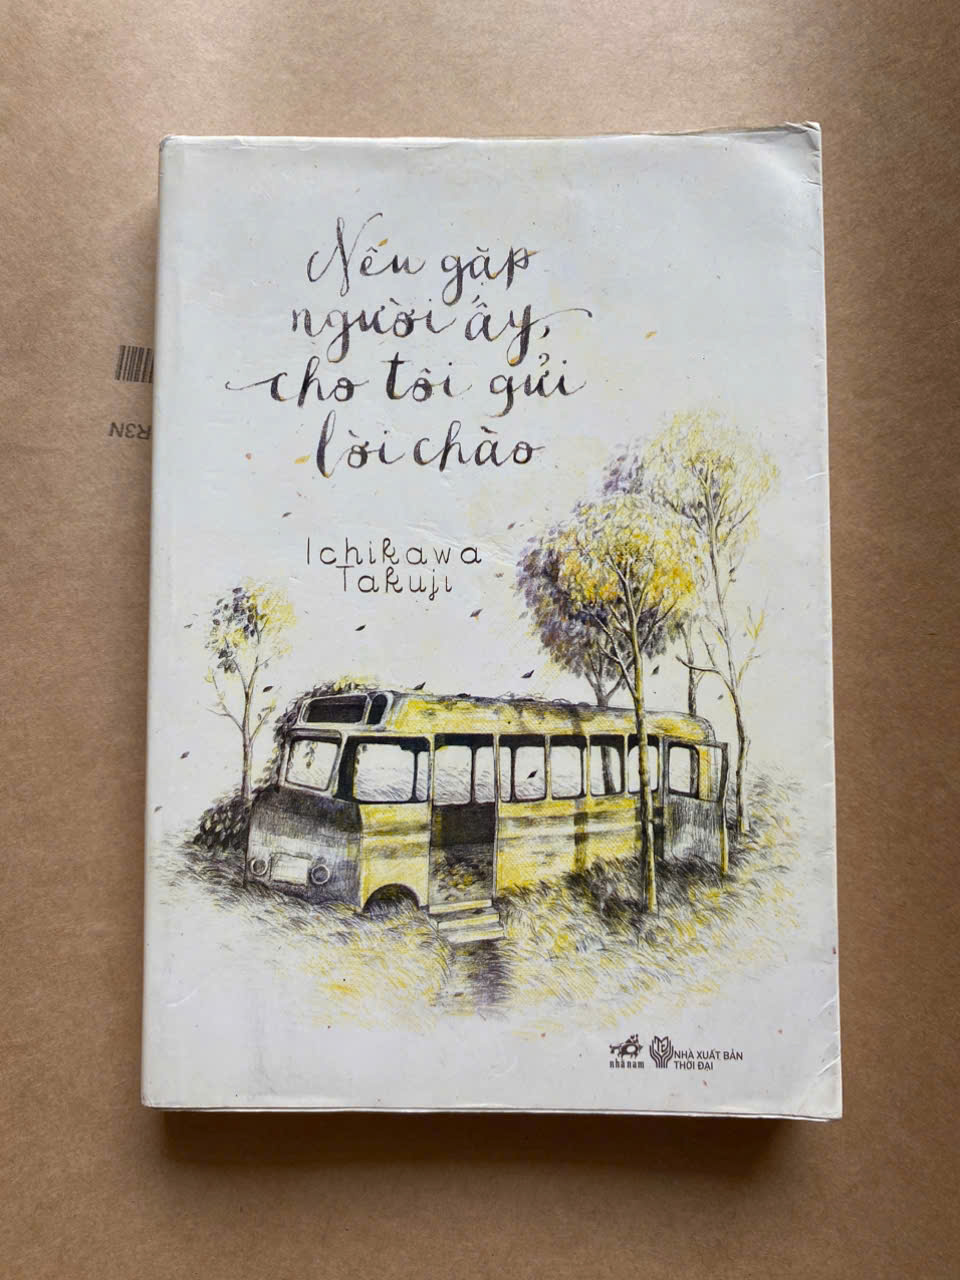 Nếu gặp
người ấy,
cho tôi gửi
lời chào
Ichikawa
Takuji
R3N
nhã nam
NHÀ XUẤT BẢN
THỜI ĐẠI